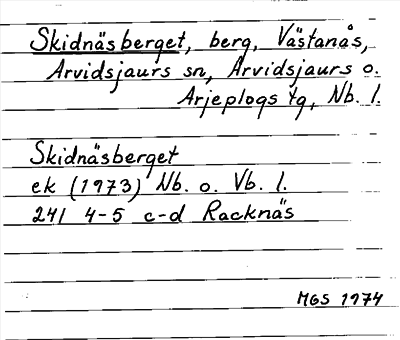 Skidnäsberget, berg, Västanås,
Arvidsjaurs sn, Arvidsjaurs o.
Arjeplogs tg, Nb. l.
Skidnäsberget
ek (1973) Nb. o. Vb. l.
241 4-5 c-d Racknäs
MGS 1974